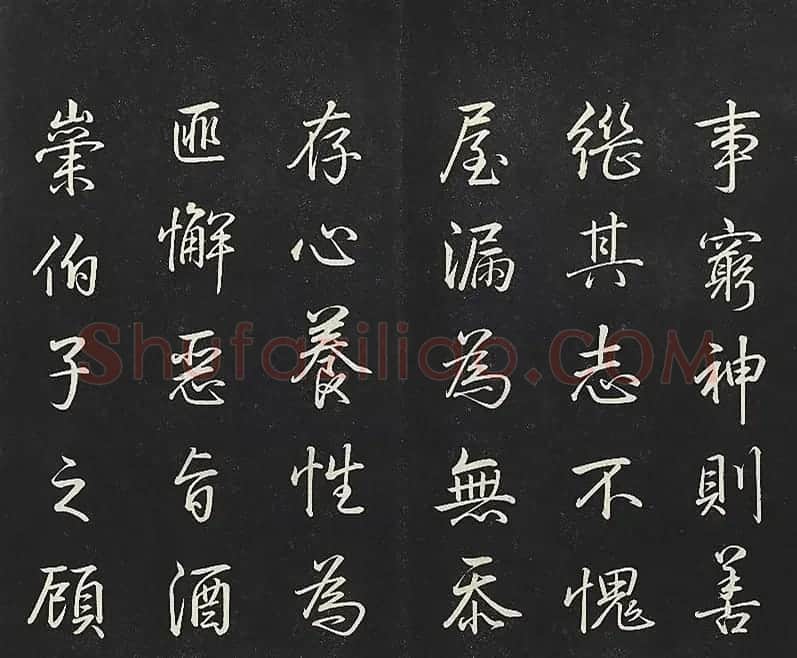 事窮神則善
繼其志不愧
屋漏為無忝
存心養性為
匪懈惡旨酒
崇伯子之顧
Shufaziliao.COM